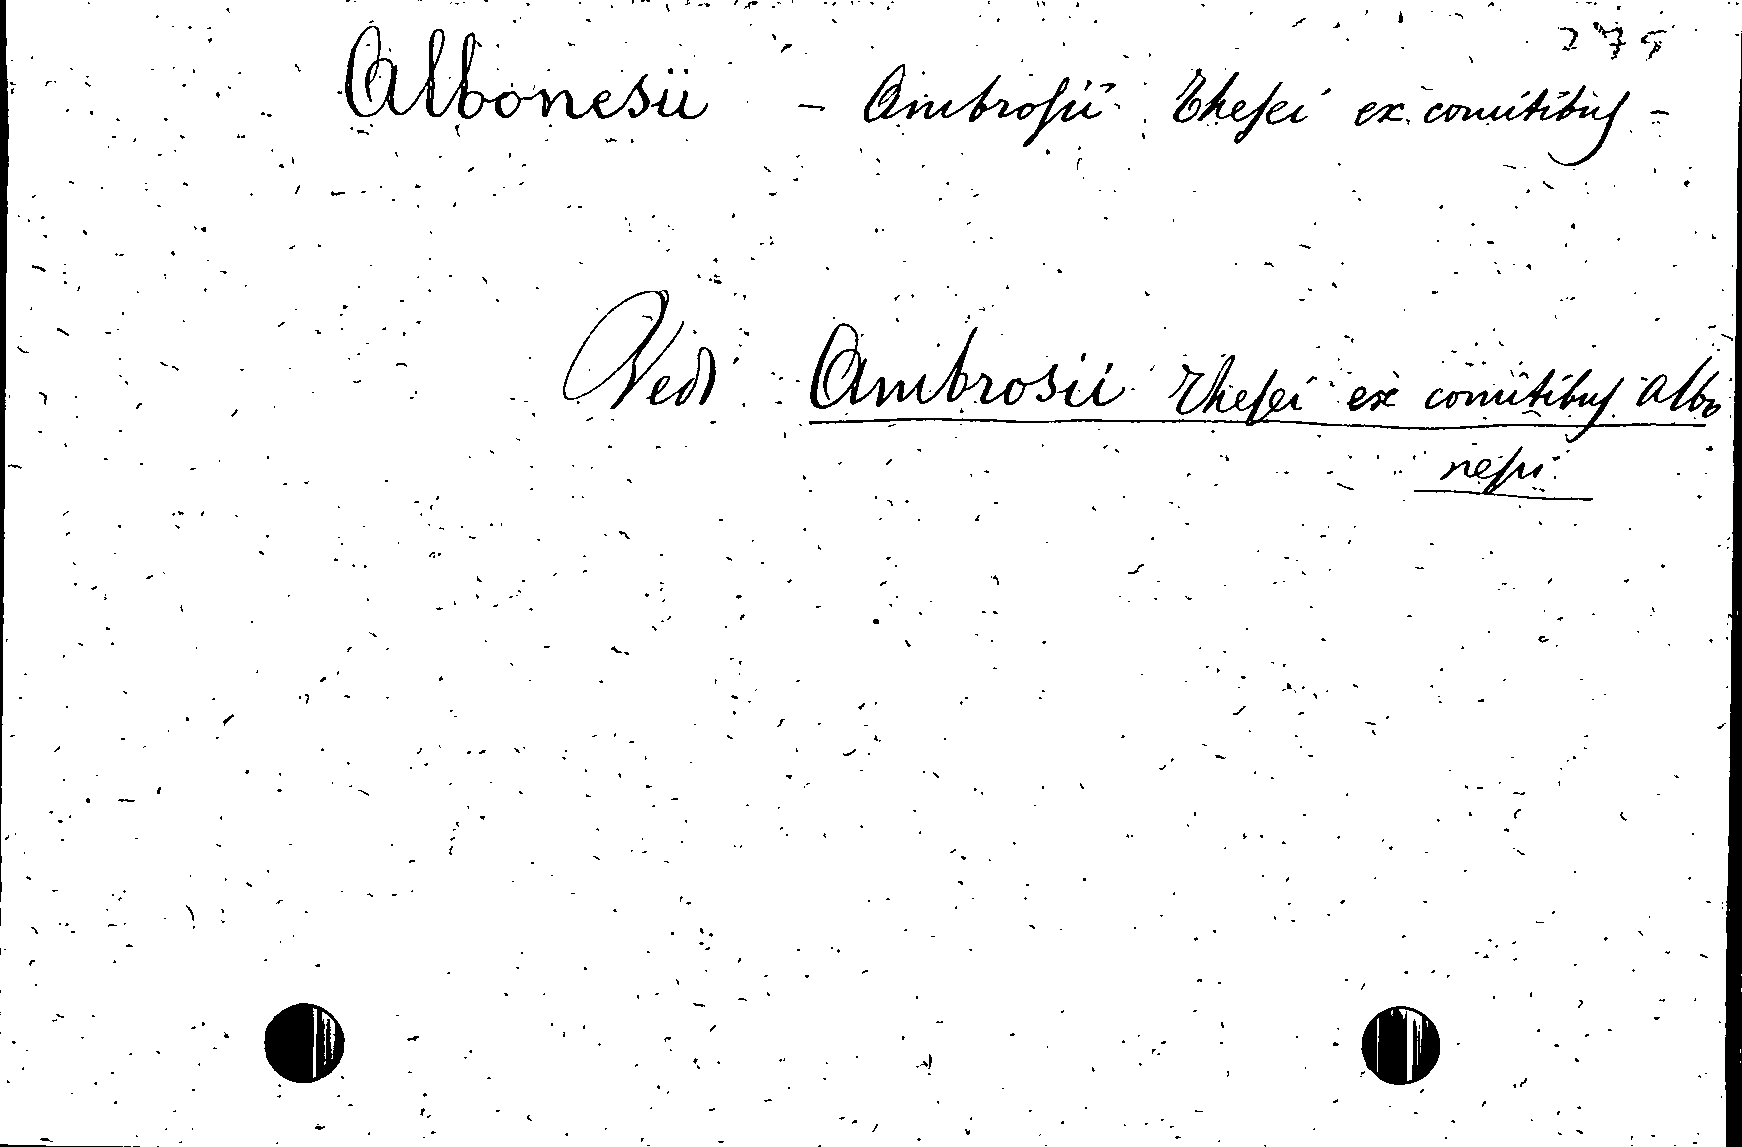 275
Albonesii - Ambrosii Thesei ex comitibus -
Vedi Ambrosii Thesei ex comitibus Albo
nesii